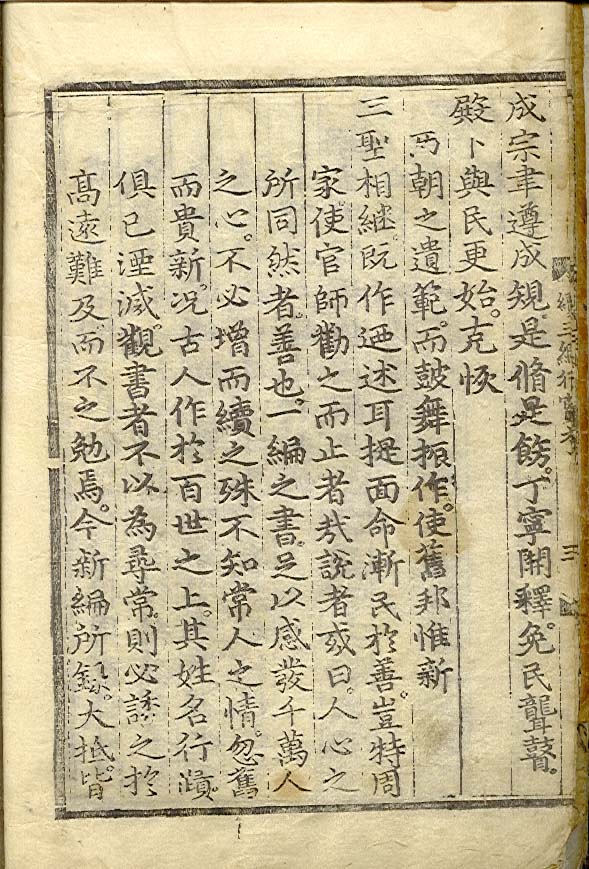 成宗聿遵成䂓。是脩是餝。丁寧開釋。免民聾瞽。
殿下與民更始。克恢
丙朝之遺範。而鼓舞振作。使舊邦惟新
三聖相継。旣作迺述耳提面命漸民於善。豈特周
家。使官師勸之而止者㢤說者或曰。人心之
所同然者。善也。一編之書。足以感發千萬人
之心。不必增而續之殊不知常人之情。忽舊
而貴新。况古人作於百世之上。其姓名行蹟。
俱已湮滅。觀書者不以為尋常。則必諉之於
高遠難及而不之勉焉。今新編所錄。大抵皆
三